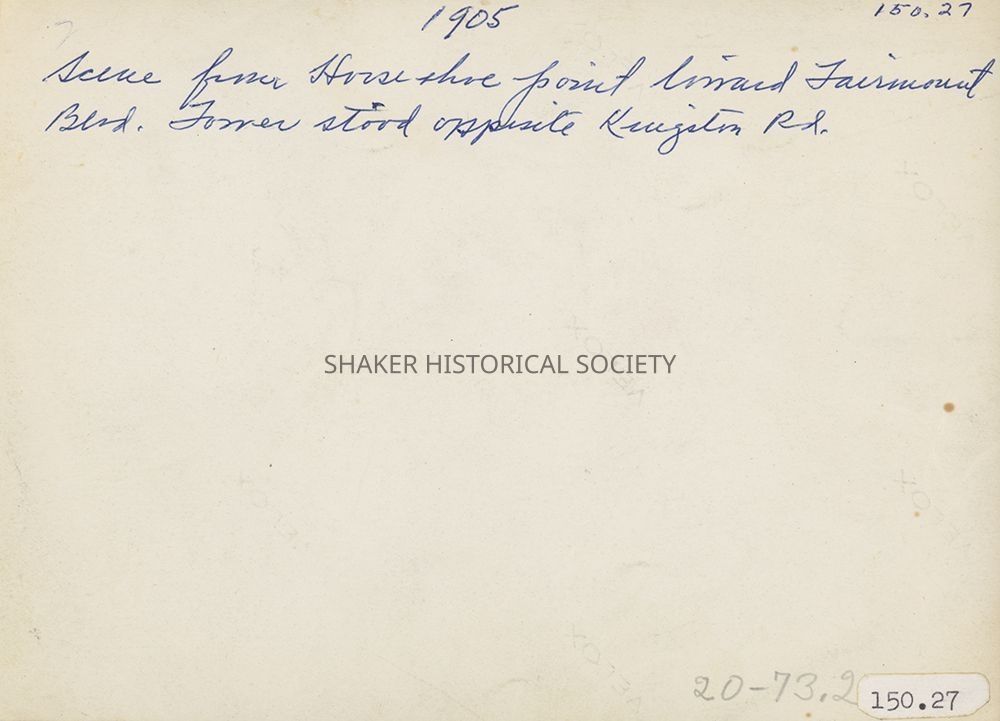 1905
150.27
Scene from Horse shoe point toward Fairmount
Blvd. Tower stood opposite Kingston Rd.
SHAKER HISTORICAL SOCIETY
20-73.2
150.27